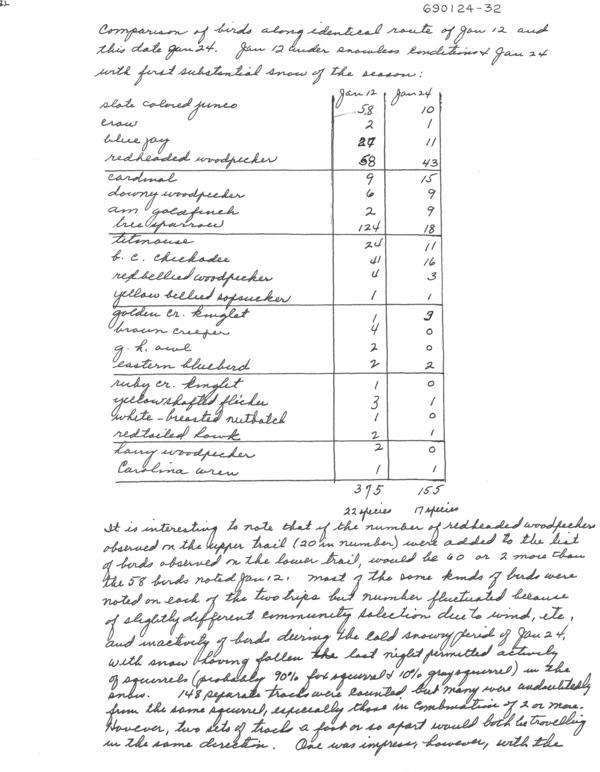 690124-32
Comparison of birds along identical route of Jan 12 and
this date Jan 24. Jan 12 under snowless conditions & Jan 24
with first substantial snow of the season:
Jan 12 Jan 24
slate colored junco 58 10
crow 2 1
blue jay 27 11
redheaded woodpecker 58 43
cardinal 9 15
downy woodpecker 6 9
am goldfinch 2 9
tree sparrow 124 18
titmouse 24 11
b. c. chickadee 41 16
redbellied woodpecker 4 3
yellow bellied sapsucker 1 1
golden cr. kinglet 1 3
brown creeper 4 0
g. h. owl 2 0
eastern bluebird 2 2
ruby cr. kinglet 1 0
yellowshafted flicker 3 1
white-breasted nuthatch 1 0
redtailed hawk 2 1
hairy woodpecker 2 0
Carolina wren 1 1
375 155
22 species 17 species
It is interesting to note that if the number of redheaded woodpeckers
observed on the upper trail (20 in number) were added to the list
of birds observed on the lower trail, would be 60 or 2 more than
the 58 birds noted Jan 12. Most of the same kinds of birds were
noted on each of the two trips but number fluctuated because
of slightly different community selection due to wind, etc,
and inactivity of birds during the cold snowy period of Jan 24,
with snow having fallen the last night permitted activity
of squirrels (probably 90% fox squirrel & 10% gray squirrel) in the
snow. 148 separate tracks were counted, but many were undoubtedly
from the same squirrel, especially those in combination of 2 or more.
However, two sets of tracks a foot or so apart would both be travelling
in the same direction. One was impress, however, with the